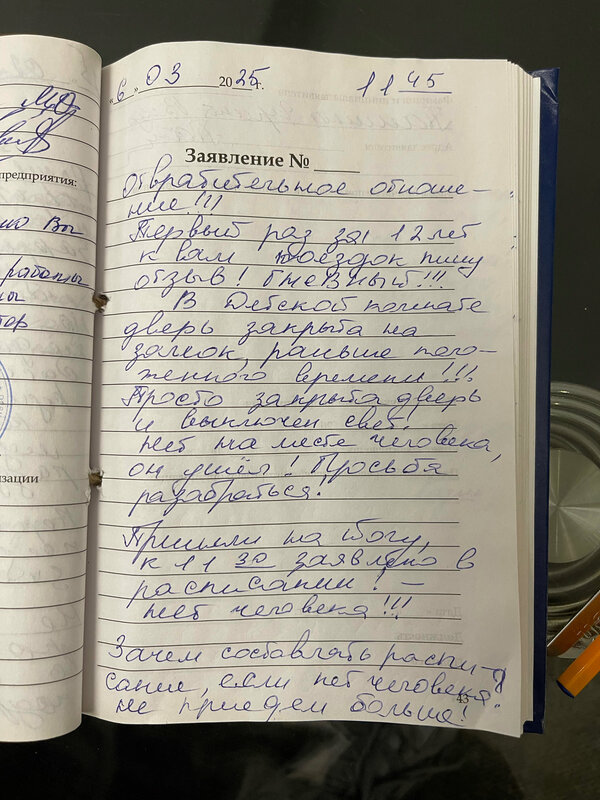 "6" 03 2025г. 11 45
Заявление №
Отвратительное отноше-
ние!!!
Первый раз за 12 лет
к вам поездок пишу
отзыв! Гневный!!!
В Детской комнате
дверь закрыта на
замок, раньше поло-
женного времени!!!
Просто закрыта дверь
и выключен свет.
Нет на месте человека,
он ушёл! Просьба
разобраться!
Пришли на йогу,
к 11 30 заявлено в
расписании! –
нет человека!!!
Зачем составлять распи-
сание, если нет человека?
Не приедем больше!
43
предприятия:
работы
ны
тор
изации